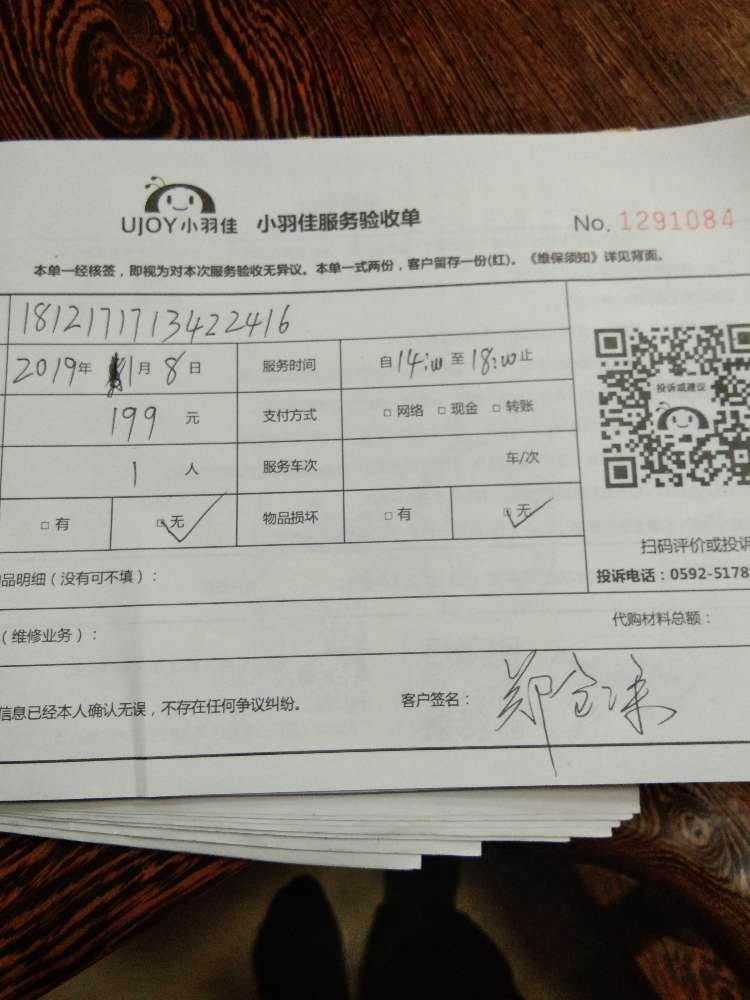 UJOY小羽佳 小羽佳服务验收单 No. 1291084
本单一经核签，即视为对本次服务验收无异议。本单一式两份，客户留存一份(红)。《维保须知》详见背面。
1812171713422416
2019年 1月 8日 服务时间 自14:00至18:00止
199 元 支付方式 □ 网络 □ 现金 □ 转账
投诉或建议
1 人 服务车次 车/次
□ 有 □ 无 物品损坏 □ 有 □ 无
扫码评价或投诉
品明细（没有可不填）：
投诉电话：0592-5178
（维修业务）： 代购材料总额：
信息已经本人确认无误，不存在任何争议纠纷。 客户签名：郑